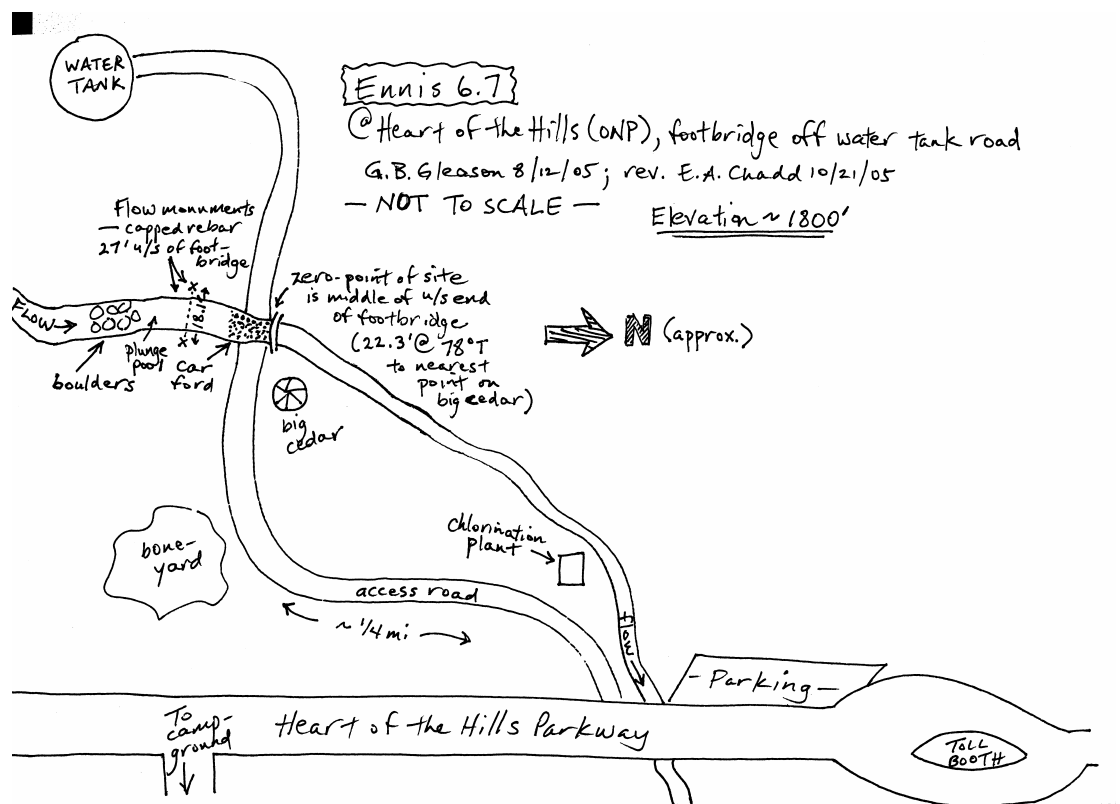 WATER
TANK
Ennis 6.7
@ Heart of the Hills (ONP), footbridge off water tank road
G.B. Gleason 8/12/05; rev. E.A. Chadd 10/21/05
— NOT TO SCALE —
Elevation ~ 1800'
Flow monuments
— capped rebar
27' u/s of foot-
bridge
zero-point of site
is middle of u/s end
of footbridge
(22.3' @ 78°T
to nearest
point on
big cedar)
FLOW →
x
18.1'
x
plunge
pool
boulders
car
ford
N (approx.)
big
cedar
bone-
yard
chlorination
plant
access road
~ 1/4 mi
flow
- Parking -
To
camp-
ground
Heart of the Hills Parkway
TOLL
BOOTH